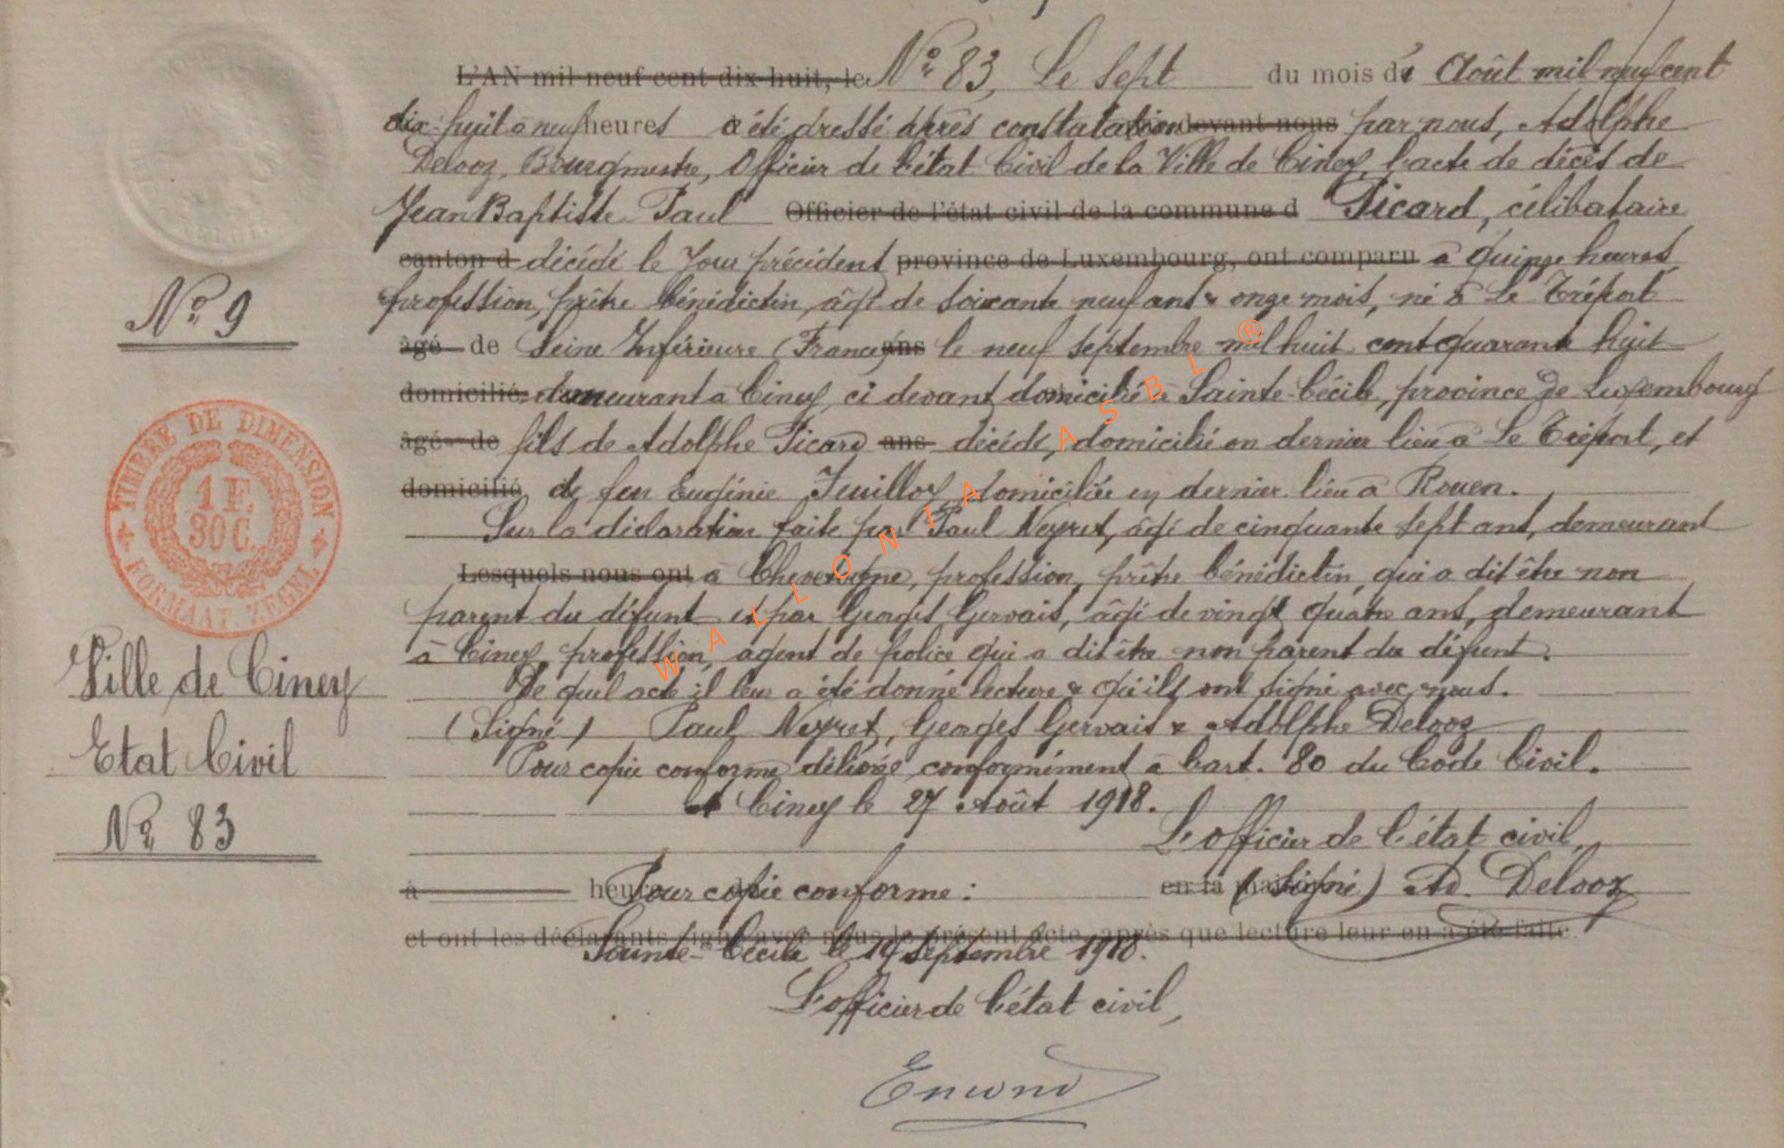 L'AN mil neuf cent dix-huit, le N° 83, Le sept du mois d' Août mil neuf cent
dix-huit à neuf heures a été dressé après constatation devant nous par nous, Adolphe
Delooz, Bourgmestre, Officier de l'état Civil de la Ville de Ciney, l'acte de décès de
Jean Baptiste Paul Officier de l'état civil de la commune d Picard, célibataire
canton d décédé le jour précédent province de Luxembourg, ont comparu à quinze heures,
N° 9
profession, prêtre bénédictin, âgé de soixante neuf ans & onze mois, né à Le Tréport
âgé de Seine Inférieure (France) ans le neuf septembre mil huit cent quarante huit
domicilié demeurant à Ciney, ci devant domicilié à Sainte-Cécile, province de Luxembourg
âgé de fils de Adolphe Picard ans décédé, domicilié en dernier lieu à Le Tréport, et
domicilié de feu Eugénie Feuilloy, domiciliée en dernier lieu à Rouen.
Sur la déclaration faite par Paul Neyret, âgé de cinquante sept ans, demeurant
Lesquels nous ont à Chevetogne, profession, prêtre bénédictin, qui a dit être non
parent du défunt et par Georges Gervais, âgé de vingt quatre ans, demeurant
à Ciney, profession, agent de police qui a dit être non parent du défunt.
De quel acte il leur a été donné lecture & qu'ils ont signé avec nous.
(Signé) Paul Neyret, Georges Gervais & Adolphe Delooz
Pour copie conforme délivrée conformément à l'art. 80 du Code Civil.
à Ciney le 27 Août 1918.
L'officier de l'état civil,
à heure Pour copie conforme: en la maison (Signé) Ad. Delooz
et ont les déclarants signé avec nous le présent acte, après que lecture leur en a été faite
Sainte-Cécile le 19 septembre 1918.
L'officier de l'état civil,
Emond
TIMBRE DE DIMENSION
1 F.
30 C.
FORMAAT. ZEGEL
Ville de Ciney
Etat Civil
N° 83
WALLONIA ASBL ®